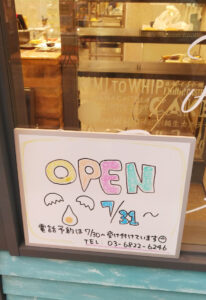 MI TO WHIP
OPEN
7/31~
電話予約は7/30~受け付けています
TEL 03-6822-6246